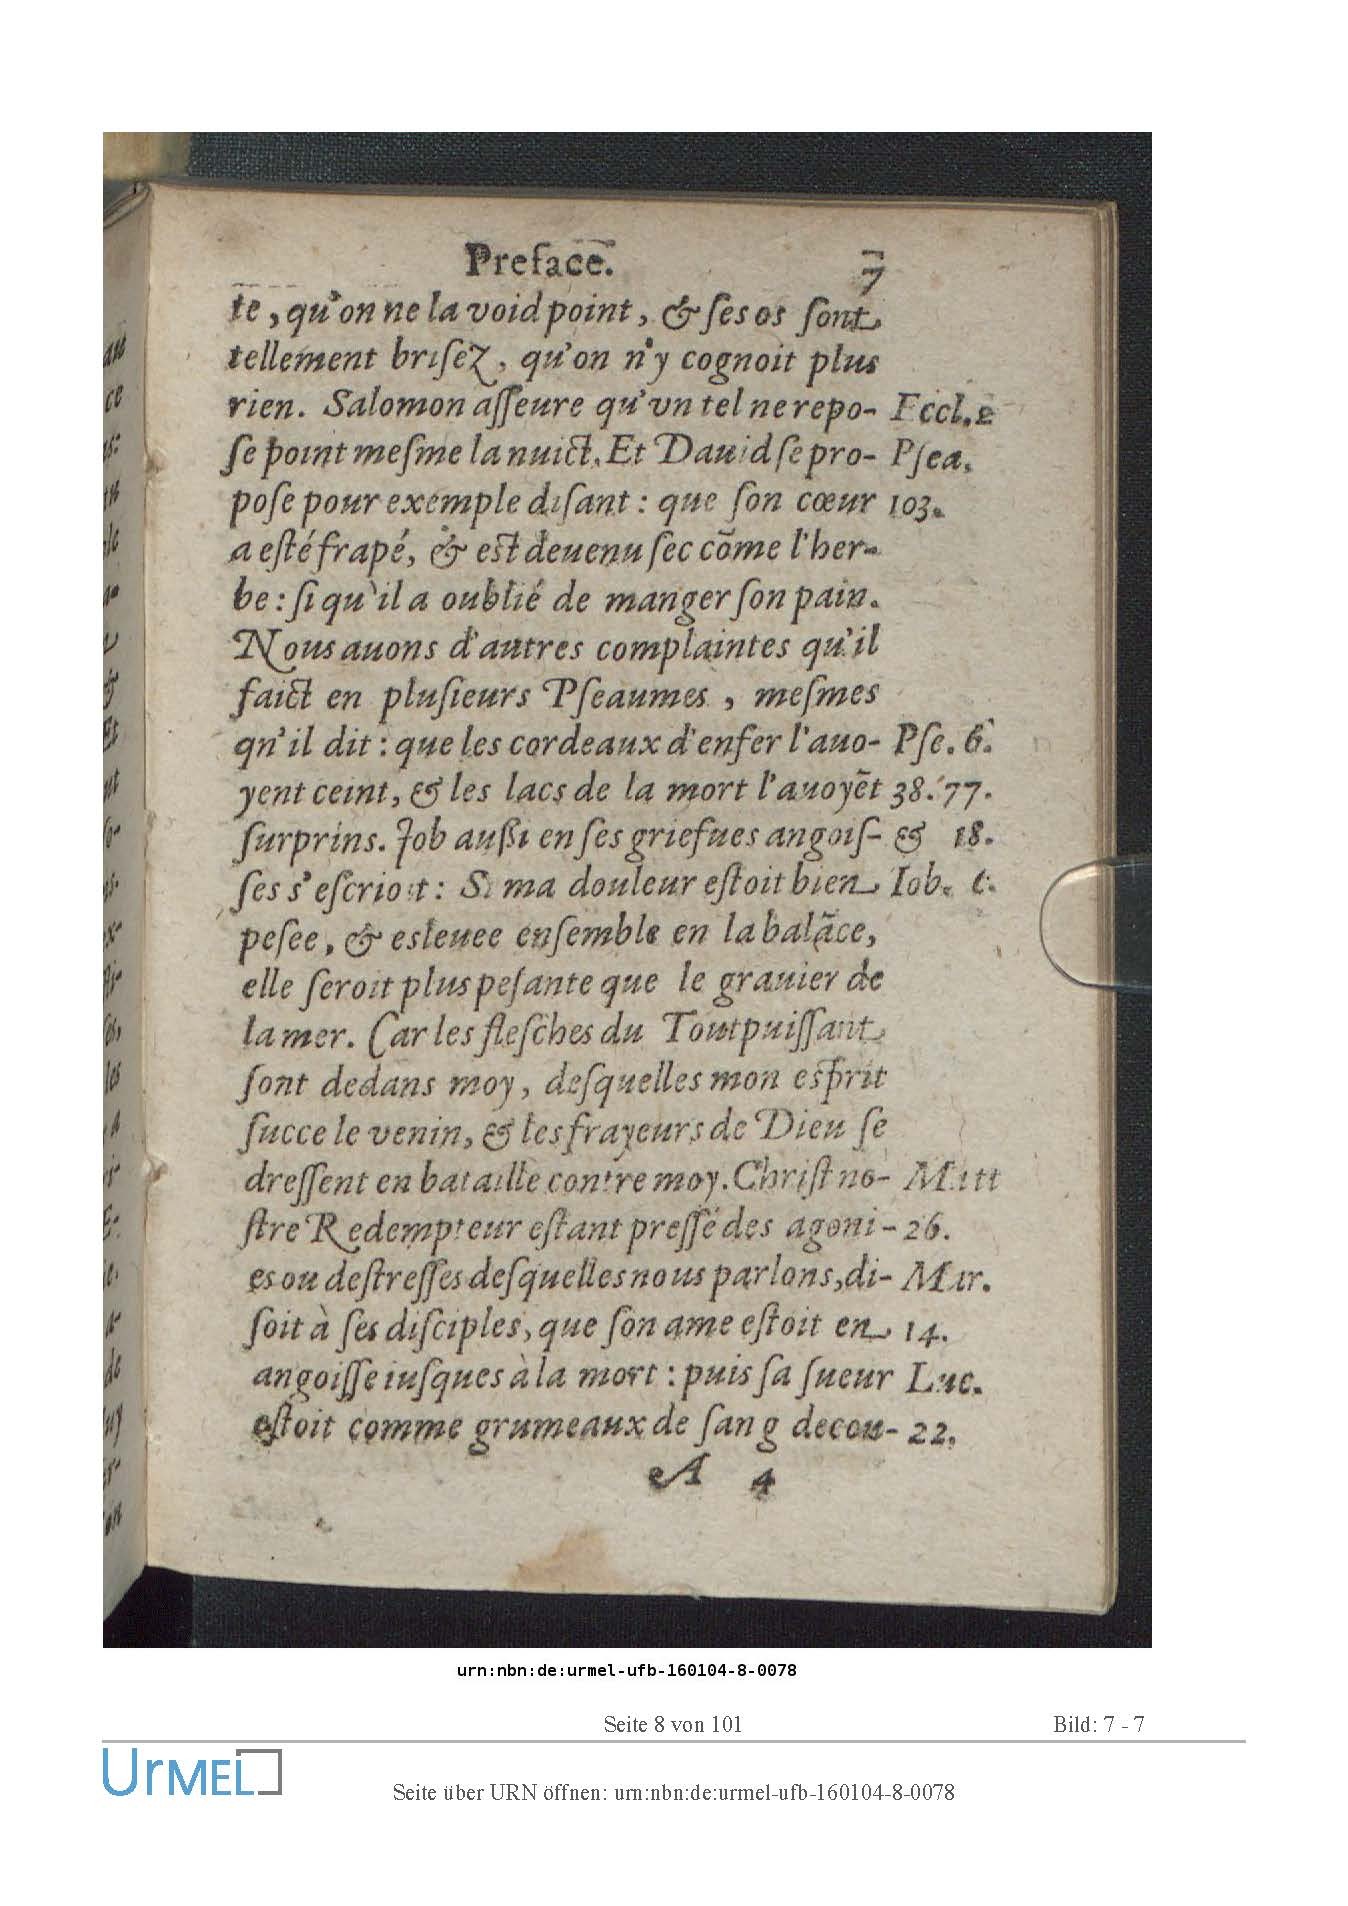 Preface. 7
te, qu'on ne la void point, & ſes os ſont
tellement briſez, qu'on n'y cognoit plus
rien. Salomon aſſeure qu'vn tel ne repo- Eccl. 2
ſe point meſme la nuict. Et Dauid ſe pro- Pſea.
poſe pour exemple diſant : que ſon cœur 103.
a eſté frapé, & eſt deuenu ſec cõme l'her-
be : ſi qu'il a oublié de manger ſon pain.
Nous auons d'autres complaintes qu'il
faict en pluſieurs Pſeaumes , meſmes
qn'il dit : que les cordeaux d'enfer l'auo- Pſe. 6.
yent ceint, & les lacs de la mort l'auoyẽt 38. 77.
ſurprins. Job auſſi en ſes griefues angoiſ- & 18.
ſes s'eſcrioit : Si ma douleur eſtoit bien Iob.
peſee, & esleuee enſemble en la balãce,
elle ſeroit plus peſante que le grauier de
la mer. Car les fleſches du Toutpuiſſant
ſont dedans moy, deſquelles mon eſprit
ſucce le venin, & les frayeurs de Dieu ſe
dreſſent en bataille contre moy. Chriſt no- Matt
ſtre Redempteur eſtant preſſé des agoni- 26.
es ou deſtreſſes deſquelles nous parlons, di- Mar.
ſoit à ſes diſciples, que ſon ame eſtoit en 14.
angoiſſe iuſques à la mort : puis ſa ſueur Luc.
eſtoit comme grumeaux de ſang decou- 22.
A 4
urn:nbn:de:urmel-ufb-160104-8-0078
Seite 8 von 101 Bild: 7 - 7
UrMEL
Seite über URN öffnen: urn:nbn:de:urmel-ufb-160104-8-0078